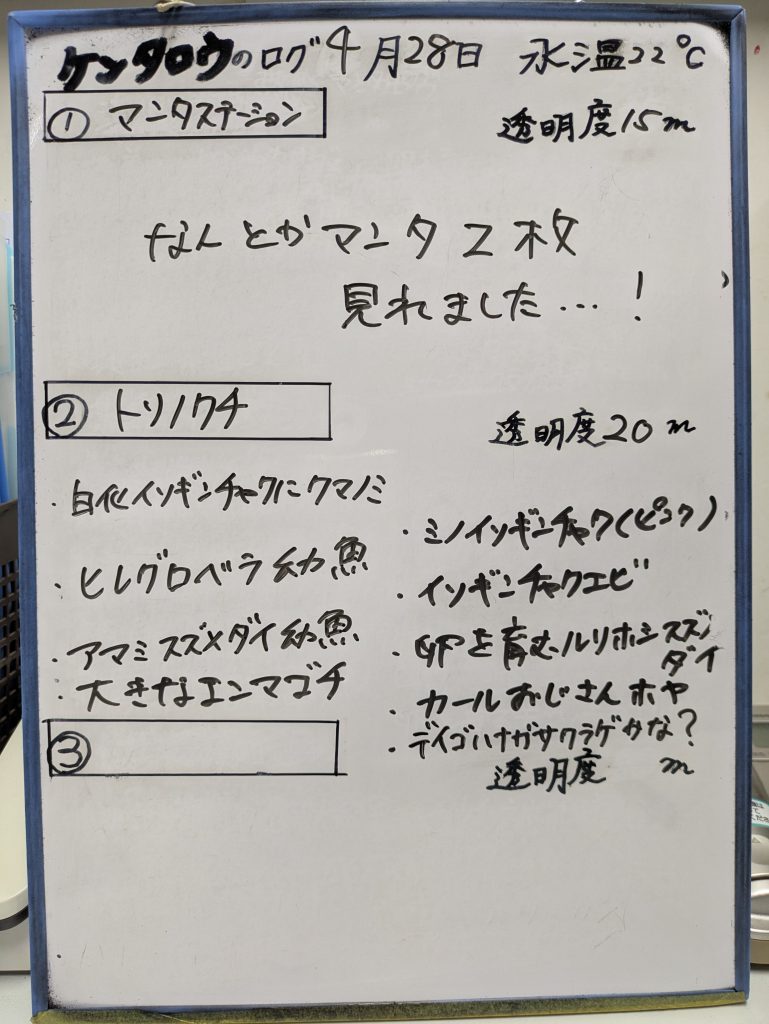 ケンタロウのログ 4月28日 水温22℃
① マンタステーション
透明度15m
なんとかマンタ2枚
見れました…！
② トリノクチ
透明度20m
・白化イソギンチャクにクマノミ
・ヒレグロベラ幼魚
・アマミスズメダイ幼魚
・大きなエンマゴチ
・ミノイソギンチャク(ピンク)
・イソギンチャクエビ
・卵を育むルリホシスズメ
ダイ
・カールおじさんホヤ
・デイゴハナガサクラゲかな？
③
透明度 m